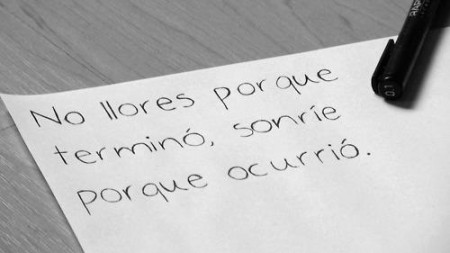 No llores porque
terminó, sonríe
porque ocurrió.
0.1